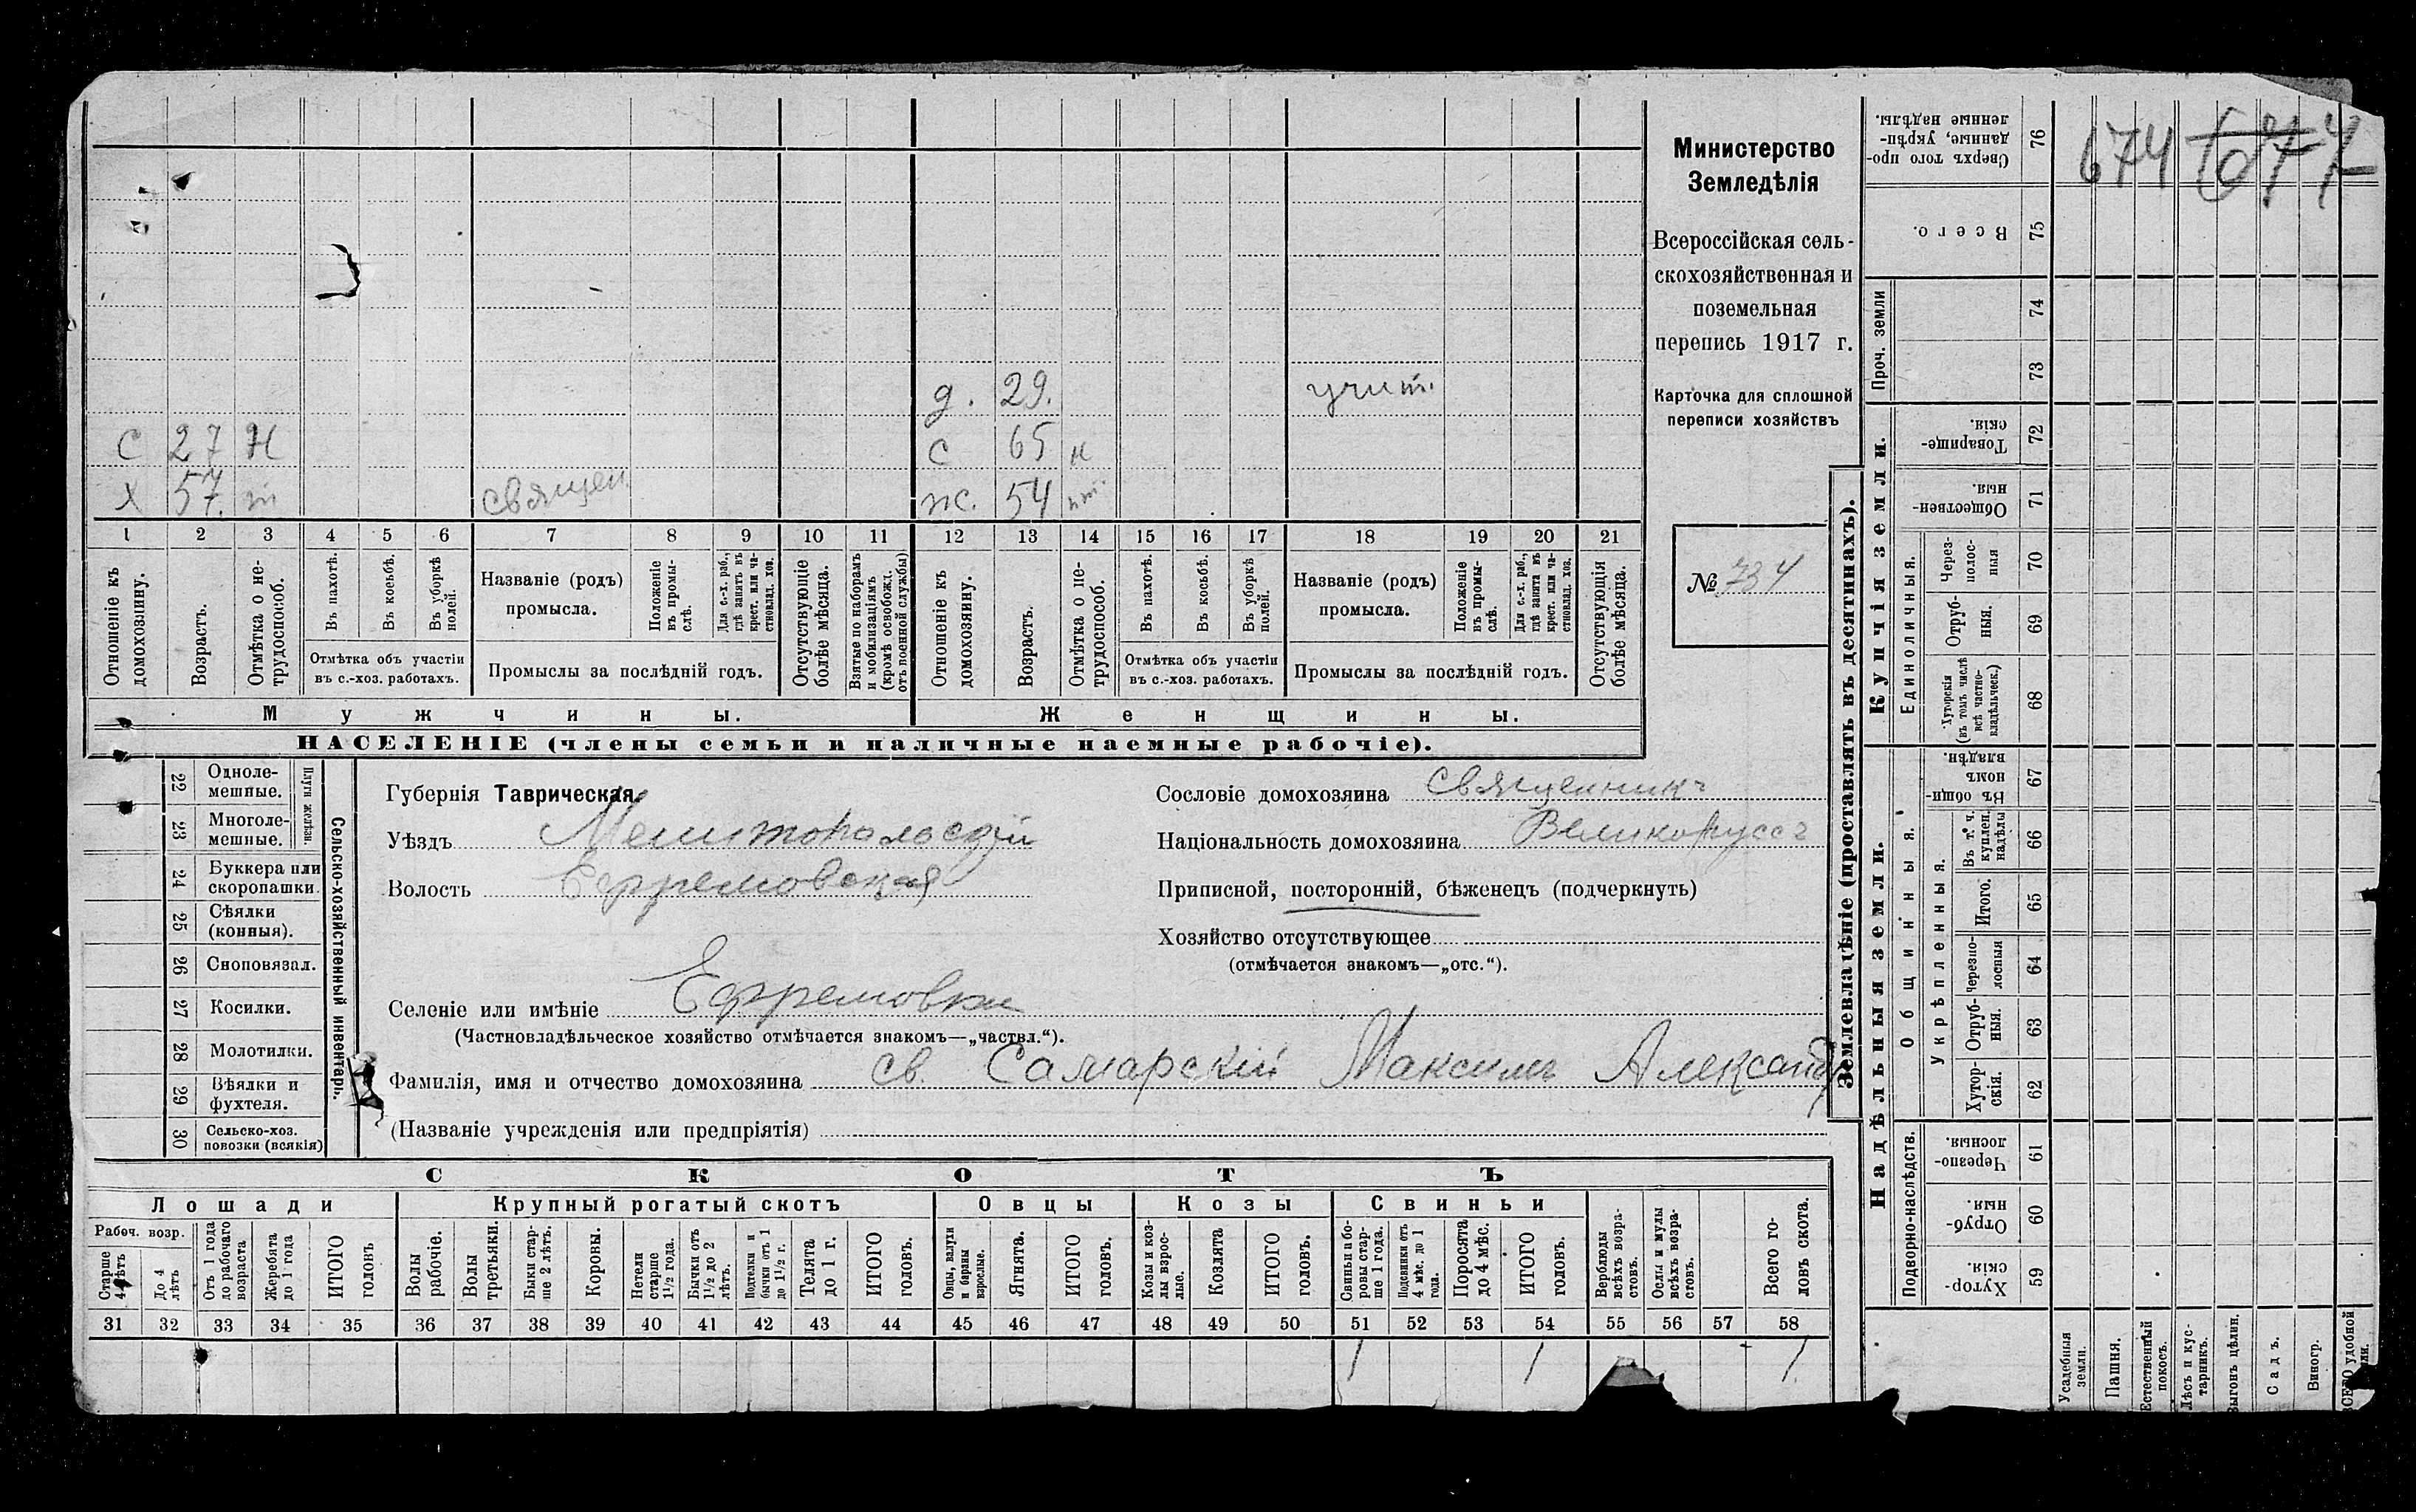 д. 29. учит.
С 27 Н с 65 н
Х 57. священ. ж. 54
1 2 3 4 5 6 7 8 9 10 11 12 13 14 15 16 17 18 19 20 21
Отношеніе къ домохозяину.
Возрастъ.
Отмѣтка о не-
трудоспособ.
Въ пахотѣ.
Въ косьбѣ.
Въ уборкѣ
полей.
Отмѣтка объ участіи
въ с.-хоз. работахъ.
Названіе (родъ)
промысла.
Положеніе
въ промы-
слѣ.
Для с.-х. раб.,
гдѣ занятъ въ
крест. или ча-
стновлад. хоз.
Промыслы за послѣдній годъ.
Отсутствующіе
болѣе мѣсяца.
Взятые по наборамъ
и мобилизаціямъ
(кромѣ освобожд.
отъ военной службы)
Отношеніе къ
домохозяину.
Возрастъ.
Отмѣтка о не-
трудоспособ.
Въ пахотѣ.
Въ косьбѣ.
Въ уборкѣ
полей.
Отмѣтка объ участіи
въ с.-хоз. работахъ.
Названіе (родъ)
промысла.
Положеніе
въ промы-
слѣ.
Для с.-х. раб.,
гдѣ занята въ
крест. или ча-
стновлад. хоз.
Промыслы за послѣдній годъ.
Отсутствующія
болѣе мѣсяца.
Мужчины.
Женщины.
НАСЕЛЕНІЕ (члены семьи и наличные наемные рабочіе).
Министерство
Земледѣлія
Всероссійская сель-
скохозяйственная и
поземельная
перепись 1917 г.
Карточка для сплошной
переписи хозяйствъ
№ 734
22 Одноле-
мешные.
23 Многоле-
мешные.
Плуги желѣзн.
24 Буккера или
скоропашки.
25 Сѣялки
(конныя).
26 Сноповязал.
27 Косилки.
28 Молотилки.
29 Вѣялки и
фухтеля.
30 Сельско-хоз.
повозки (всякія)
Сельско-хозяйственный инвентарь.
Губернія Таврическая.
Уѣздъ Мелитопольскій
Волость Ефремовская
Селеніе или имѣніе Ефремовка
(Частновладѣльческое хозяйство отмѣчается знакомъ—„частвл.“).
Сословіе домохозяина Священникъ
Національность домохозяина Великоруссъ
Приписной, посторонній, бѣженецъ (подчеркнуть)
Хозяйство отсутствующее
(отмѣчается знакомъ—„отс.“).
Фамилія, имя и отчество домохозяина св. Самарскій Максимъ Александр
(Названіе учрежденія или предпріятія)
СКОТЪ
Лошади
Крупный рогатый скотъ
Овцы
Козы
Свиньи
Рабоч. возр.
Старше
4 лѣтъ
До 4
лѣтъ
Отъ 1 года
до рабочаго
возраста
Жеребята
до 1 года
ИТОГО
головъ
Волы
рабочіе.
Волы
третьяки.
Быки стар-
ше 2 лѣтъ.
Коровы.
Нетели
старше
1½ года.
Бычки отъ
1½ до 2
лѣтъ.
Подтелки и
бычки отъ 1
до 1½ г.
Телята
до 1 г.
ИТОГО
головъ.
Овцы, валухи
и бараны
взрослые.
Ягнята.
ИТОГО
головъ.
Козы и коз-
лы взрос-
лые.
Козлята
ИТОГО
головъ.
Свиньи и бо-
ровы стар-
ше 1 года.
Подсвинки отъ
4 мѣс. до 1
года.
Поросята
до 4 мѣс.
ИТОГО
головъ.
Верблюды
всѣхъ возра-
стовъ.
Ослы и мулы
всѣхъ возра-
стовъ.
Всего го-
ловъ скота.
31 32 33 34 35 36 37 38 39 40 41 42 43 44 45 46 47 48 49 50 51 52 53 54 55 56 57 58
1 1 1
Землевладѣніе (проставлять въ десятинахъ).
Купчія земли.
Надѣльныя земли.
674 674
Сверхъ того про-
данные, укрѣп-
ленные надѣлы. 76
Всего. 75
Проч. земли 74
73
Товарище-
скія. 72
Обществен-
ныя. 71
Единоличныя.
Через-
полос-
ныя 70
Отруб-
ныя. 69
Хуторскія
(въ томъ числѣ
всѣ частно-
владѣльческ.) 68
Общинныя.
Въ общин-
номъ
владѣн. 67
Укрѣпленныя.
Въ т. ч.
куплен.
надѣлы 66
Итого. 65
Черезпо-
лосныя 64
Отруб-
ныя. 63
Хутор-
скія. 62
Подворно-наслѣдств.
Черезпо-
лосныя. 61
Отруб-
ныя. 60
Хутор-
скія. 59
Усадебныя
земли.
Пашня.
Естественный
покосъ.
Лѣсъ и кус-
тарникъ.
Выгонъ цѣлин.
Садъ.
Виногр.
ВСЕГО удобной